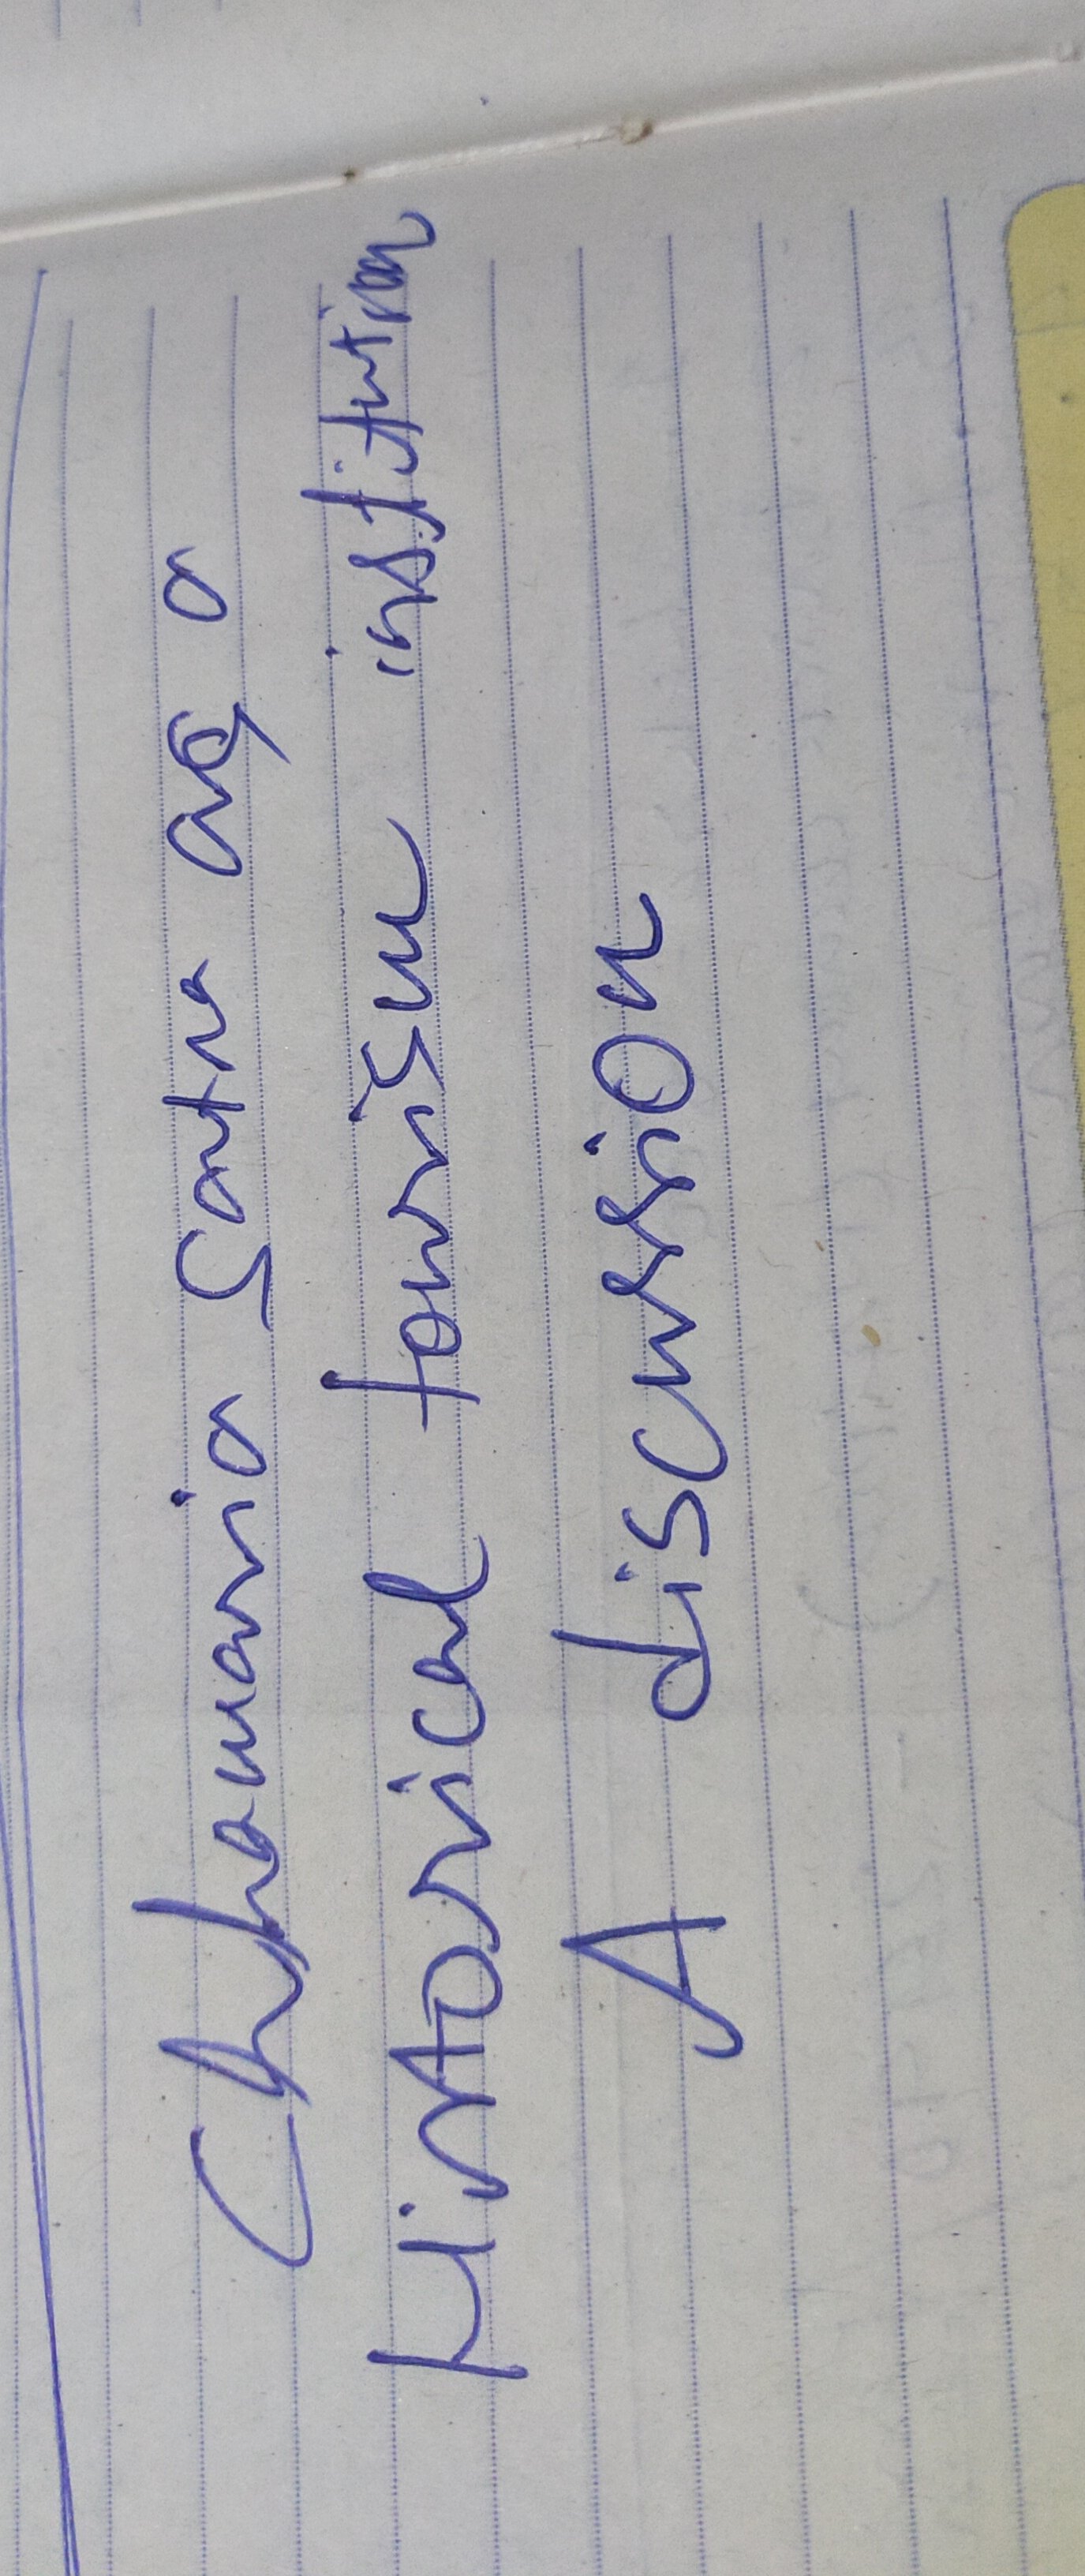 Chhamaria Satra as a
Historical tourism institution
A discussion